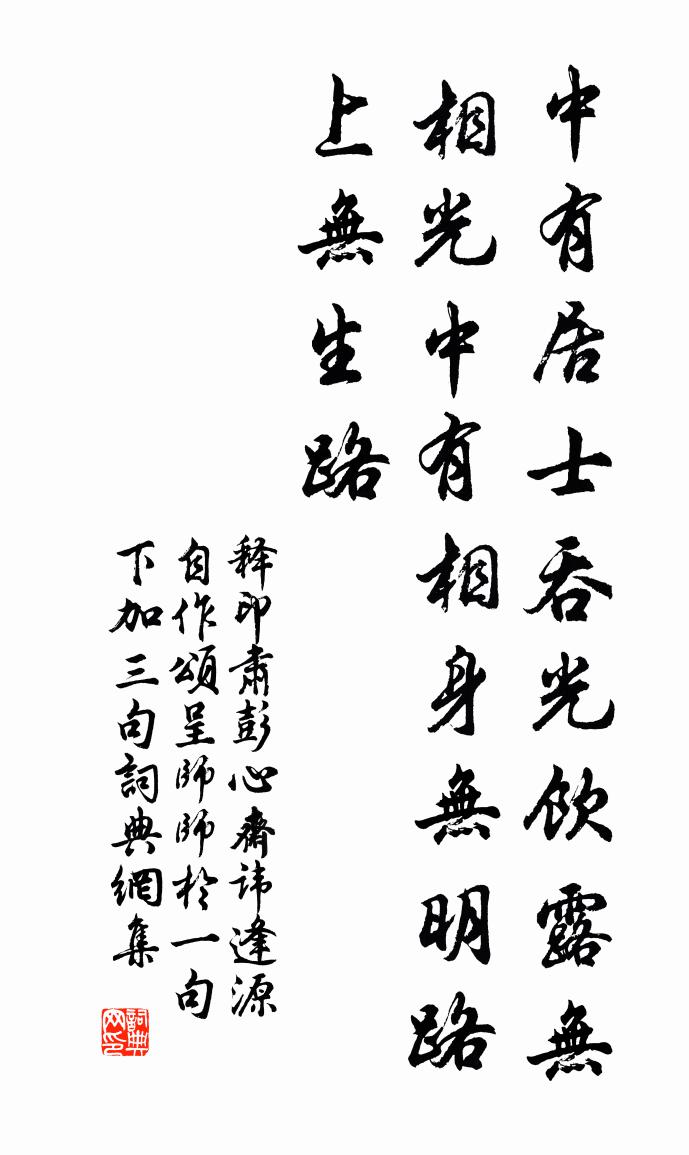 中有居士吞光飲露無
相光中有相身無明路
上無生路
释印肅彭心齋諱逢源
自作頌呈師師於一句
下加三句詞典網集
詞典网印